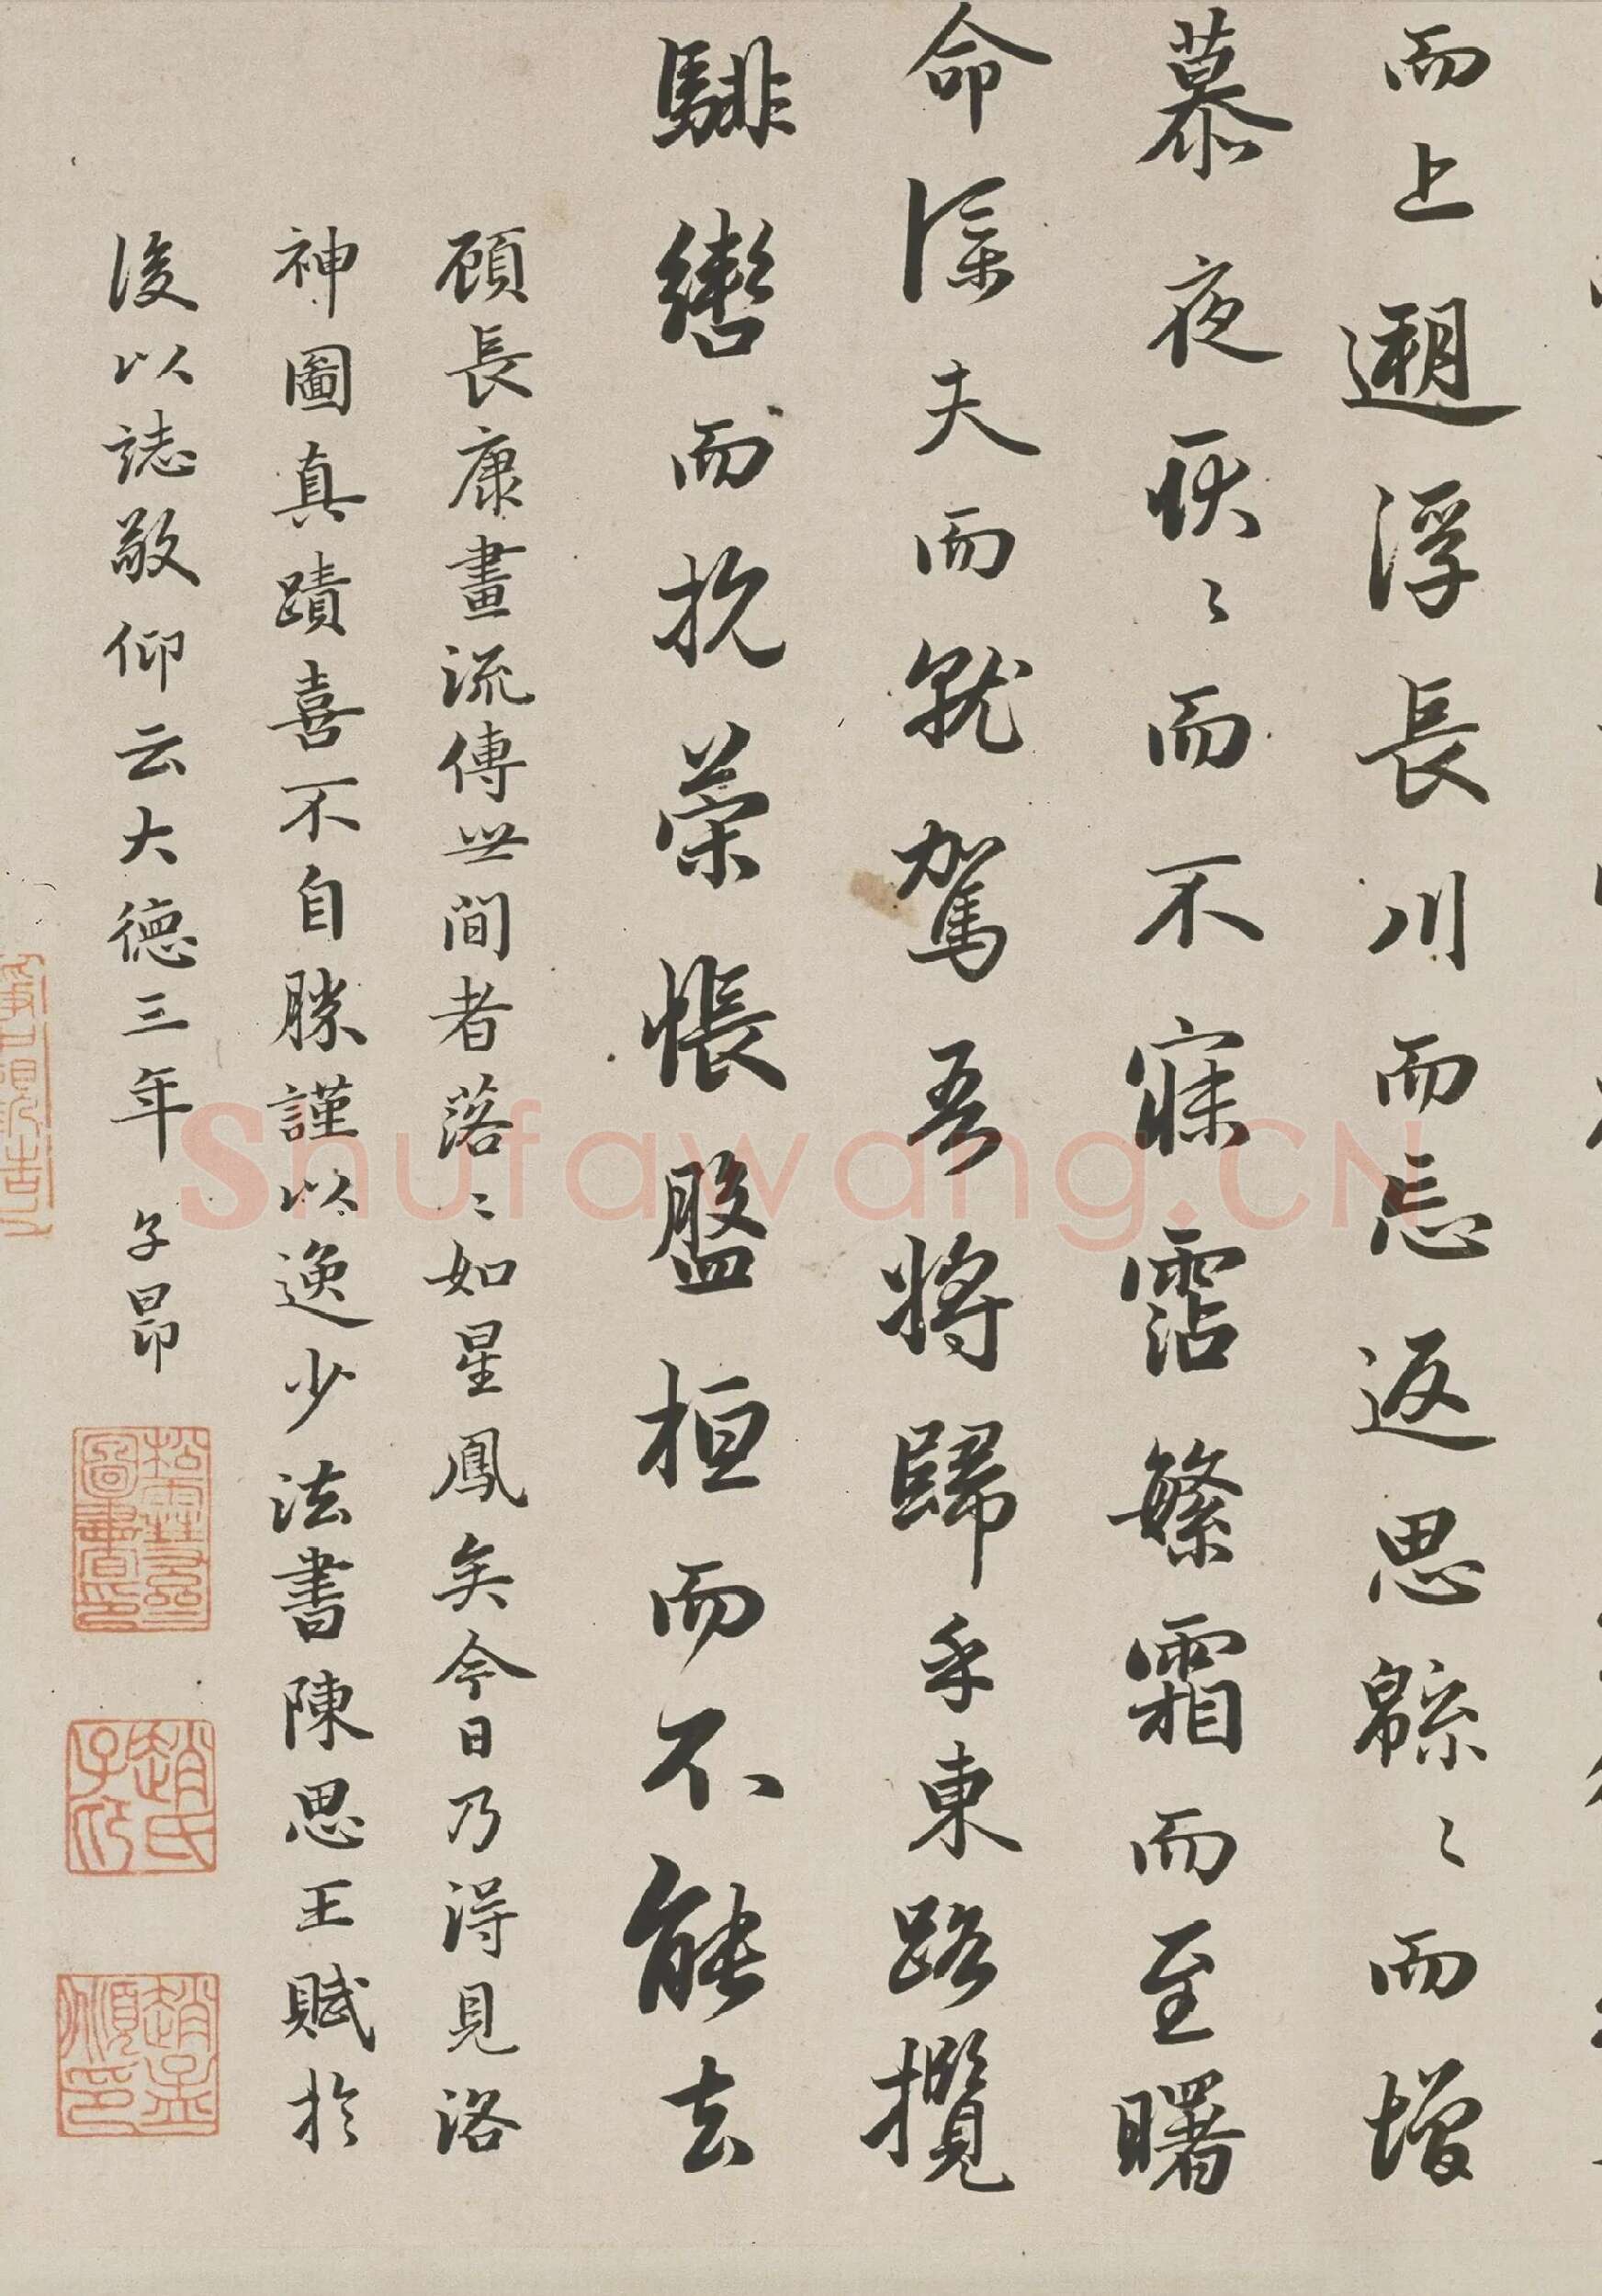 而上遡浮長川而忘返思緜〻而增
慕夜耿〻而不寐霑繁霜而至曙
命僕夫而就駕吾將歸乎東路攬
騑轡而抗策悵盤桓而不能去
顧長康畫流傳世間者落〻如星鳳矣今日乃得見洛
神圖真蹟喜不自勝謹以逸少法書陳思王賦於
後以誌敬仰云大德三年 子昂
松雪齋圖書印
趙氏子昂
趙孟頫印
Shufawang.CN